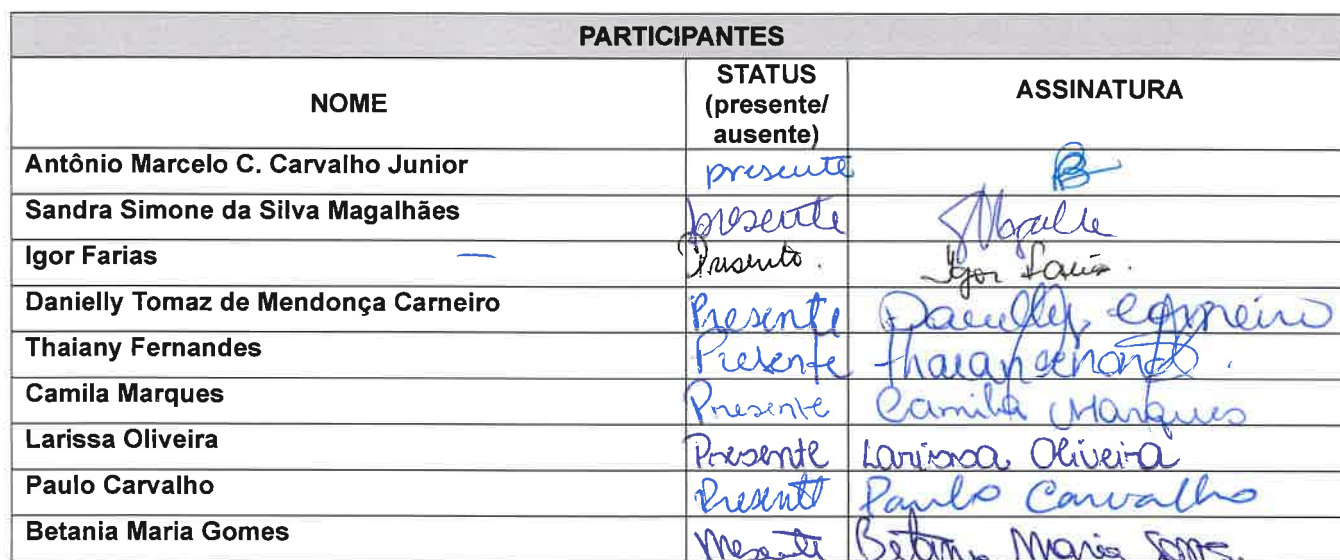 PARTICIPANTES
NOME
STATUS
(presente/
ausente)
ASSINATURA
Antônio Marcelo C. Carvalho Junior presente
Sandra Simone da Silva Magalhães presente
Igor Farias Presente. Igor Farias.
Danielly Tomaz de Mendonça Carneiro Presente Danielly Carneiro
Thaiany Fernandes Presente
Camila Marques Presente Camila Marques
Larissa Oliveira Presente Larissa Oliveira
Paulo Carvalho Presente Paulo Carvalho
Betania Maria Gomes Presente Betania Maria Gomes.